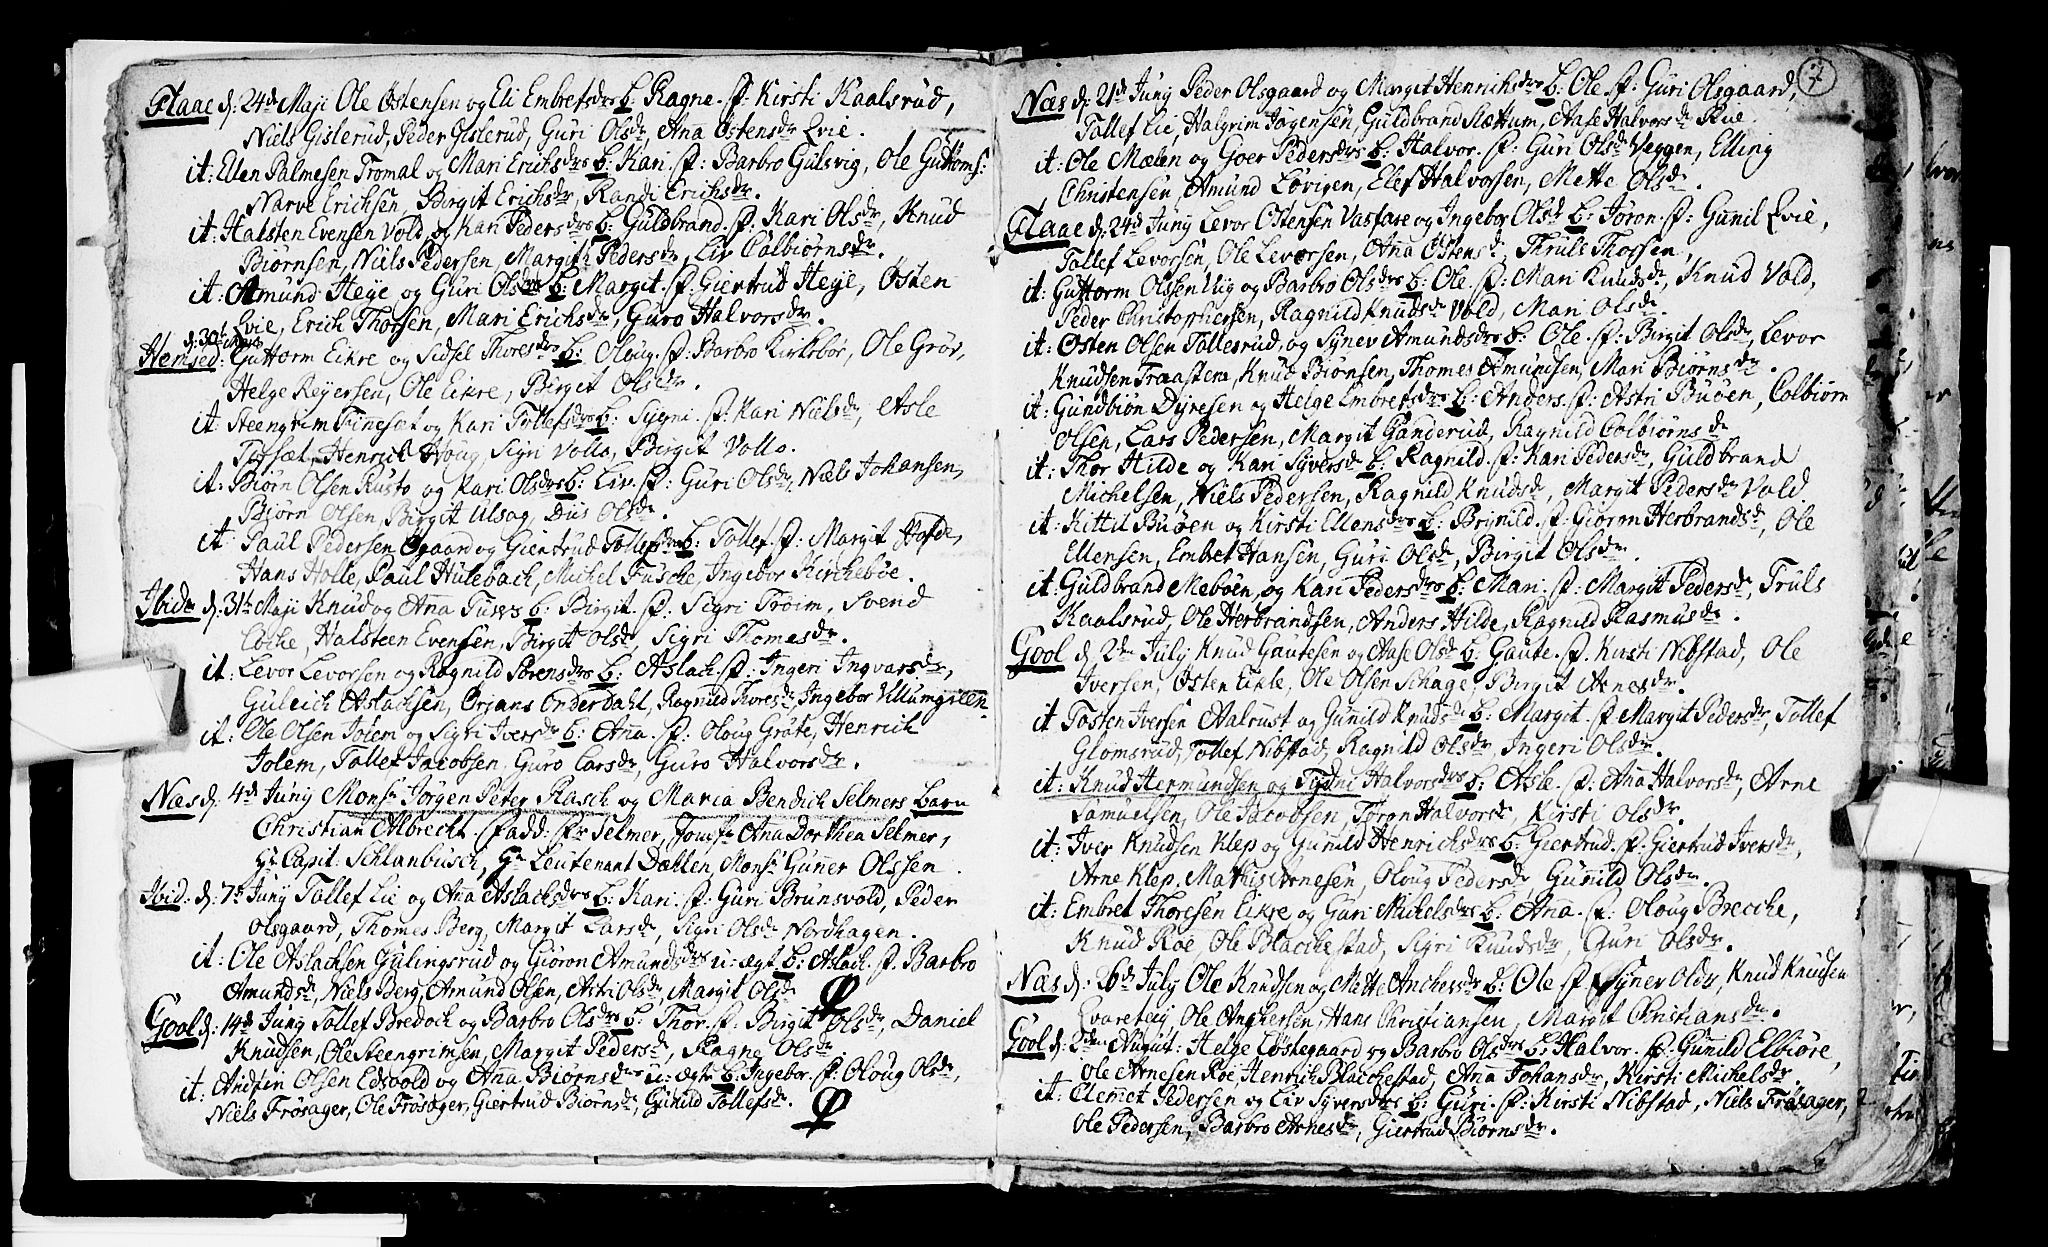 Flaae d: 24de Maji Ole Østensen og Eli Embretsdrs b: Ragne. f: Kirsti Kaalsrud,
Niels Gislerud, Peder Gislerud, Guri Olsdr, Anna Østensdr Evie.
it: Ellen Palmesen Tromal og Mari Erichsdrs b: Kari. f: Barbro Gulsvig, Ole Guttorms:
Narve Erichsen, Birgit Erichsdr, Randi Erichsdr.
it: Halsten Evensen Vold og Kari Pedersdrs b: Guldbrand. f: Kari Olsdr, Knud
Biørnsen, Niels Pedersen, Margit Pedersdr, Liv Colbiørnsdr.
it: Amund Heye og Guri Olsdrs b: Margit. f: Giertrud Heye, Østen
Evie, Erich Thorsen, Mari Erichsdr, Guro Halvorsdr.
d: 30t Maji
Hemsed: Guttorm Eikre og Sidsel Thoresdrs b: Oloug. f: Barbro Kirkebør, Ole Grøv,
Helge Reyersen, Ole Eikre, Birgit Olsdr.
it: Steengrim Finneset og Kari Tollefsdrs b: Sygni. f: Kari Nielsdr, Asle
Thoset, Henrich Houg, Sigri Vollo, Birgit Vollo.
it: Biørn Olsen Rusto og Kari Olsdrs b: Liv. f: Guri Olsdr, Niels Johansen,
Biørn Olsen, Birgit Ulsag, Diis Olsdr.
it: Paul Pedersen Øgaard og Giertrud Tollefsdrs b: Tollef. f: Margit Hofde,
Hans Holle, Paul Hulebach, Michel Tusche, Ingebor Kirchebøe.
Ibidm d: 31te Maji Knud og Anna Tuvs b: Birgit. f: Sigri Trøim, Svend
Løcke, Halsteen Evensen, Birgit Olsdr, Sigri Thomasdr.
it: Levor Levorsen og Ragnild Sørensdrs b: Aslach. f: Ingeri Ingvarsdr,
Gulleich Aslachsen, Ørjans Onderdahl, Ragnild Thoresdr, Ingebor Villumgreen.
it: Ole Olsen Jølem og Sigri Iversdr b: Anna. f: Oloug Grøte, Henrich
Jolem, Tollef Jacobsen, Guro Larsdr, Guro Halvorsdr.
Næs d: 4de Juny Monsr Jørgen Peter Rasch og Maria Bendich Selmers Barn
Christian Albrecht. fadd: Fr Selmer, Jomfr Anna Dorthea Selmer,
Hr Capit: Schlanbusch, Hr Leutenant Dæhlen, Monsr Guner Olssen.
Ibid: d: 7de Juny Tollef Lie og Anna Aslachsdrs b: Kari. f: Guri Brunsvold, Peder
Olsgaard, Thomes Berg, Margit Larsdr, Sigri Olsdr Nordhagen.
it: Ole Aslachsen Gulingsrud og Giøron Amundsdrs u: ægt b: Aslach. f: Barbro
Amundsdr, Niels Berg, Amund Olsen, Astri Olsdr, Margit Olsdr
Gool d: 14de Juny Tollef Bredoch og Barbro Olsdrs b: Thor. f: Birgit Olsdr, Daniel
Knudsen, Ole Steengrimsen, Margit Pedersdr, Ragne Olsdr.
it: Andfin Olsen Edsvold og Anna Biørnsdrs u: ægte b: Ingebor. f: Oloug Olsdr,
Niels Frøsager, Ole Frøsager, Giertrud Biørnsdr, Gunild Tollefsdr.
7
Næs d: 21de Juny Peder Olsgaard og Margit Henrichsdrs b: Ole f: Guri Olsgaard,
Tollef Lie, Halgrim Jørgensen, Guldbrand Slættum, Aase Halvorsdr Rie.
it: Ole Mælen og Goer Pedersdrs b: Halvor. f: Guri Olsdr Veggen, Elling
Christensen, Amund Løvigen, Elef Halvorsen, Mette Olsdr.
Flaae d: 24de Juny Levor Østensen Vasfare og Ingebor Olsdr b: Jøron. f: Gunil Evie,
Tollef Levorsen, Ole Levorsen, Anna Østensdr, Thruls Thorsen,
it: Guttorm Olssen Viig og Barbro Olsdrs b: Ole. f: Mari Knudsdr, Knud Vold,
Peder Christophersen, Ragnild Knudsdr Vold, Mari Olsdr.
it: Østen Olsen Tollesrud og Synev Amundsdrs b: Ole. f: Birgit Olsdr, Levor
Knudsen Traasteen, Knud Biønsen, Thomes Amundsen, Mari Biørnsdr.
it: Gundbiøn Dyresen og Helge Embretsdrs b: Anders. f: Astri Buøen, Colbiørn
Olsen, Lars Pedersen, Margit Randerud, Ragnild Colbiørnsdr
it: Thor Hilde og Kari Syversdr b: Ragnild. f: Kari Pedersdr, Guldbrand
Michelsen, Niels Pedersen, Ragnild Knudsdr, Margit Pedersdr Vold
it: Kittil Buøen og Kirsti Ellensdrs b: Brynild. f: Giørm Herbrandsdr, Ole
Ellensen, Embret Hansen, Guri Olsdr, Birgit Olsdr.
it: Guldbrand Mebøen og Kari Pedersdrs b: Mari. f: Margit Pedersdr, Truls
Kaalsrud, Ole Herbrandsen, Anders Hilde, Ragnild Rasmusdr.
Gool d 2den July Knud Gautesen og Aase Olsdr b: Gaute. f. Kirsti Nibstad, Ole
Iversen, Østen Eikle, Ole Olsen Schage, Birgit Arnesdr.
it Tosten Iversen Aalrust og Gunild Knudsdr b: Margit. f Margit Pedersdr, Tollef
Glomsrud, Tollef Nibstad, Ragnild Olsdr, Ingeri Olsdr.
it: Knud Hermundsen og Sygni Halvorsdrs b: Asle. f: Anna Halvorsdr, Arne
Samuelsen, Ole Jacobsen, Jøron Halvorsdr, Kirsti Olsdr.
it: Iver Knudsen Klep og Gunild Henrichsdrs b: Giertrud. f: Giertrud Iversdr,
Arne Klep, Mathis Arnesen, Oloug Pedersdr, Gunild Olsdr.
it: Embret Thoresen Eikre og Guri Michelsdrs b: Anna. f: Oloug Brecche,
Knud Roe, Ole Blacchestad, Sigri Knudsdr, Guri Olsdr.
Næs d: 26de July Ole Knudsen og Mette Anchersdr b: Ole f. Synev Oldr, Knud Knudsen
Ole Anchersen, Hans Christiansen, Margit Christiansdr.
Gool d: 2den August: Helge Løstegaard og Barbro Olsdrs b: Halvor. f. Gunild Elbiøre,
Ole Arnesen Roe, Henrich Blacchestad, Anna Johansdr, Kirsti Michelsdr.
it: Clemet Pedersen og Liv Syversdrs b: Guri. f: Kirsti Nibstad, Niels Frøsager,
Ole Pedersen, Barbro Arnesdr, Giertrud Biørnsdr.